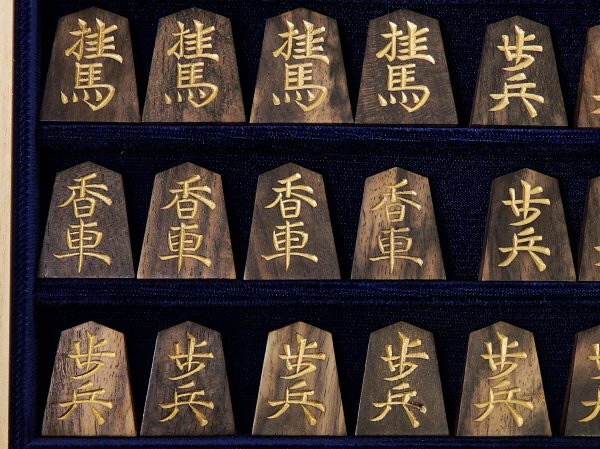 桂馬
桂馬
桂馬
桂馬
歩兵
香車
香車
香車
香車
歩兵
歩兵
歩兵
歩兵
歩兵
歩兵